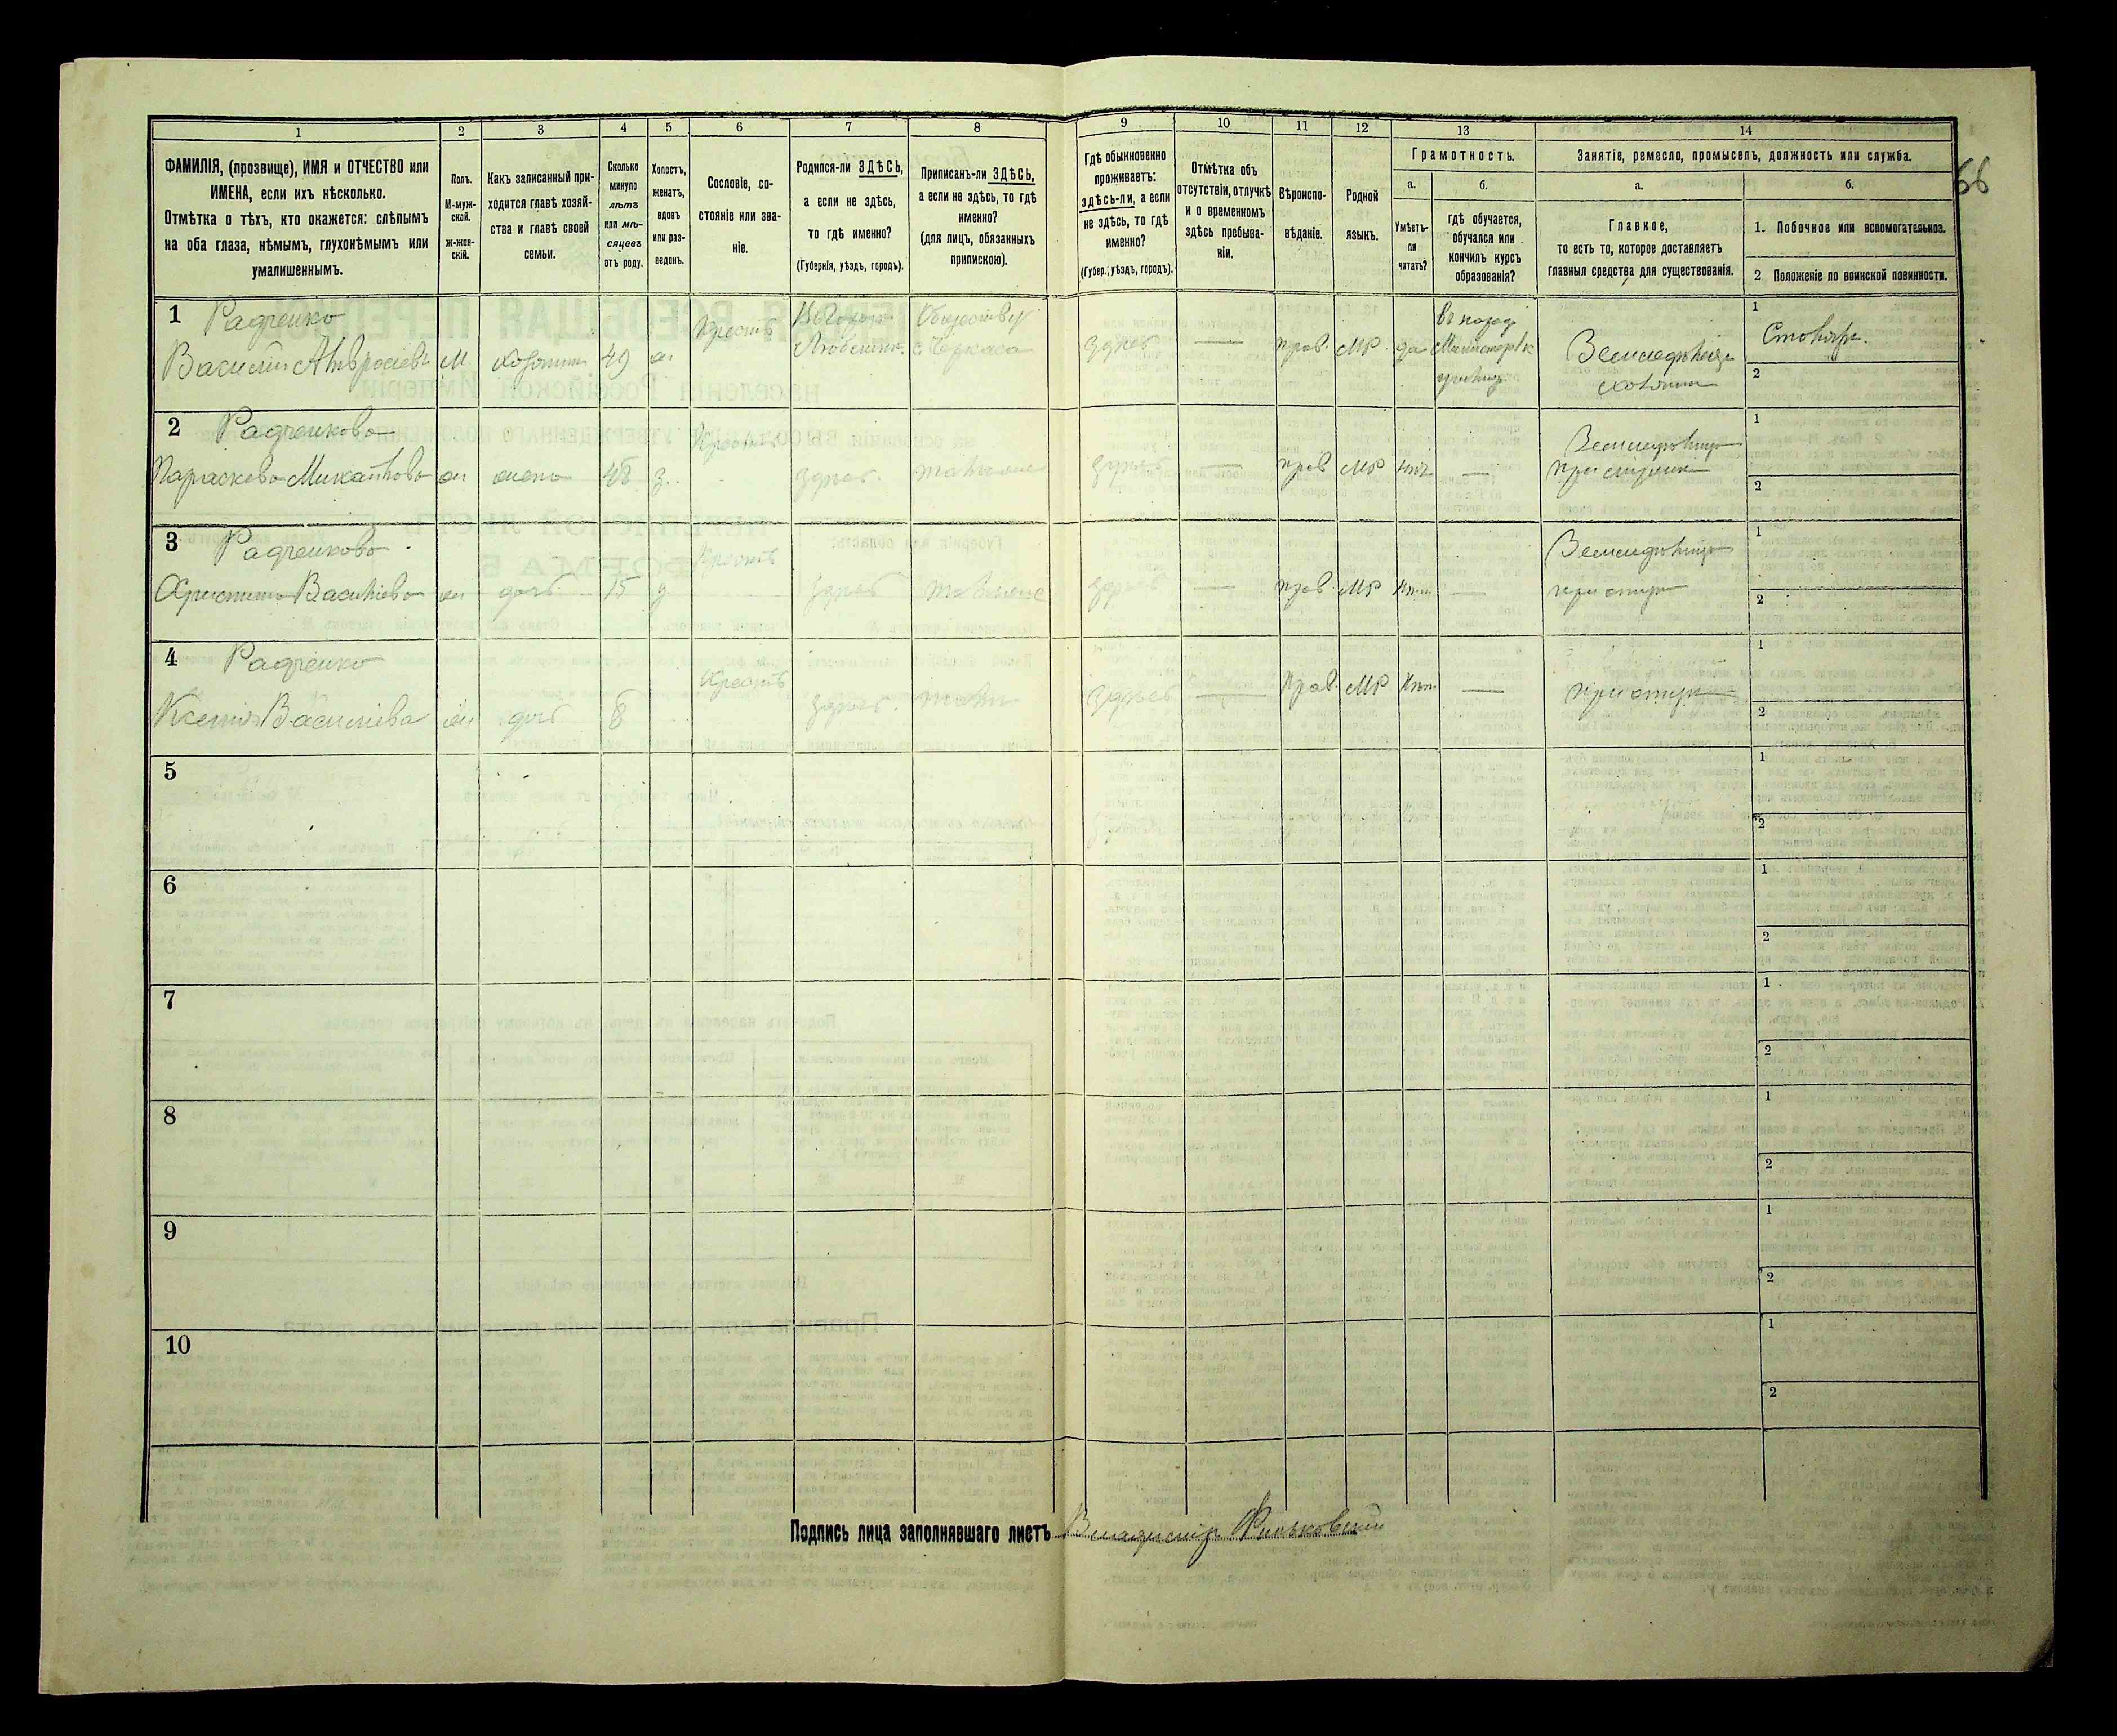 1 2 3 4 5 6 7 8 9 10 11 12 13 14
66
ФАМИЛІЯ, (прозвище), ИМЯ и ОТЧЕСТВО или
ИМЕНА, если ихъ нѣсколько.
Отмѣтка о тѣхъ, кто окажется: слѣпымъ
на оба глаза, нѣмымъ, глухонѣмымъ или
умалишеннымъ.
Полъ.
М-муж-
ской.
ж-жен-
скій.
Какъ записанный при-
ходится главѣ хозяй-
ства и главѣ своей
семьи.
Сколько
минуло
лѣтъ
или мѣ-
сяцовъ
отъ роду.
Холостъ,
женатъ,
вдовъ
или раз-
веденъ.
Сословіе, со-
стояніе или зва-
ніе.
Родился-ли ЗДѢСЬ,
а если не здѣсь,
то гдѣ именно?
(Губернія, уѣздъ, городъ).
Приписанъ-ли ЗДѢСЬ,
а если не здѣсь, то гдѣ
именно?
(для лицъ, обязанныхъ
припискою).
Гдѣ обыкновенно
проживаетъ:
здѣсь-ли, а если
не здѣсь, то гдѣ
именно?
(Губер., уѣздъ, городъ).
Отмѣтка объ
отсутствіи, отлучкѣ
и о временномъ
здѣсь пребыва-
ніи.
Вѣроиспо-
вѣданіе.
Родной
языкъ.
Грамотность.
а.
Умѣетъ-
ли
читать?
б.
гдѣ обучается,
обучался или
кончилъ курсъ
образованія?
Занятіе, ремесло, промыселъ, должность или служба.
а.
Главное,
то есть то, которое доставляетъ
главныя средства для существованія.
б.
1. Побочное или вспомогательное.
2 Положеніе по воинской повинности.
1 Радченко
Василій Амвросіевъ М хозяинъ 49 ж
Крестъ
с. Черкаса
здѣсь — прав. МР да
Земледѣліе
хозяинъ
1 Столяръ.
2
2 Радченкова
Параскева Михайлова ж жена 48 з.
Крест
здѣсь. тамъ
здѣсь — прав МР нѣт —
Земледѣліе
при мужѣ
1
2
3 Радченкова
Христина Васильева ж дочь 15 д
Крестъ
здѣсь
здѣсь — прав. МР —
Земледѣліе
при отцѣ
1
2
4 Радченко
Ксенія Василіева ж дочь 8
Крестъ
здѣсь
здѣсь — Прав. МР —
при отцѣ
1
2
5
1
2
6
1
2
7
1
2
8
1
2
9
1
2
10
1
2
Подпись лица заполнявшаго листъ Владиміръ